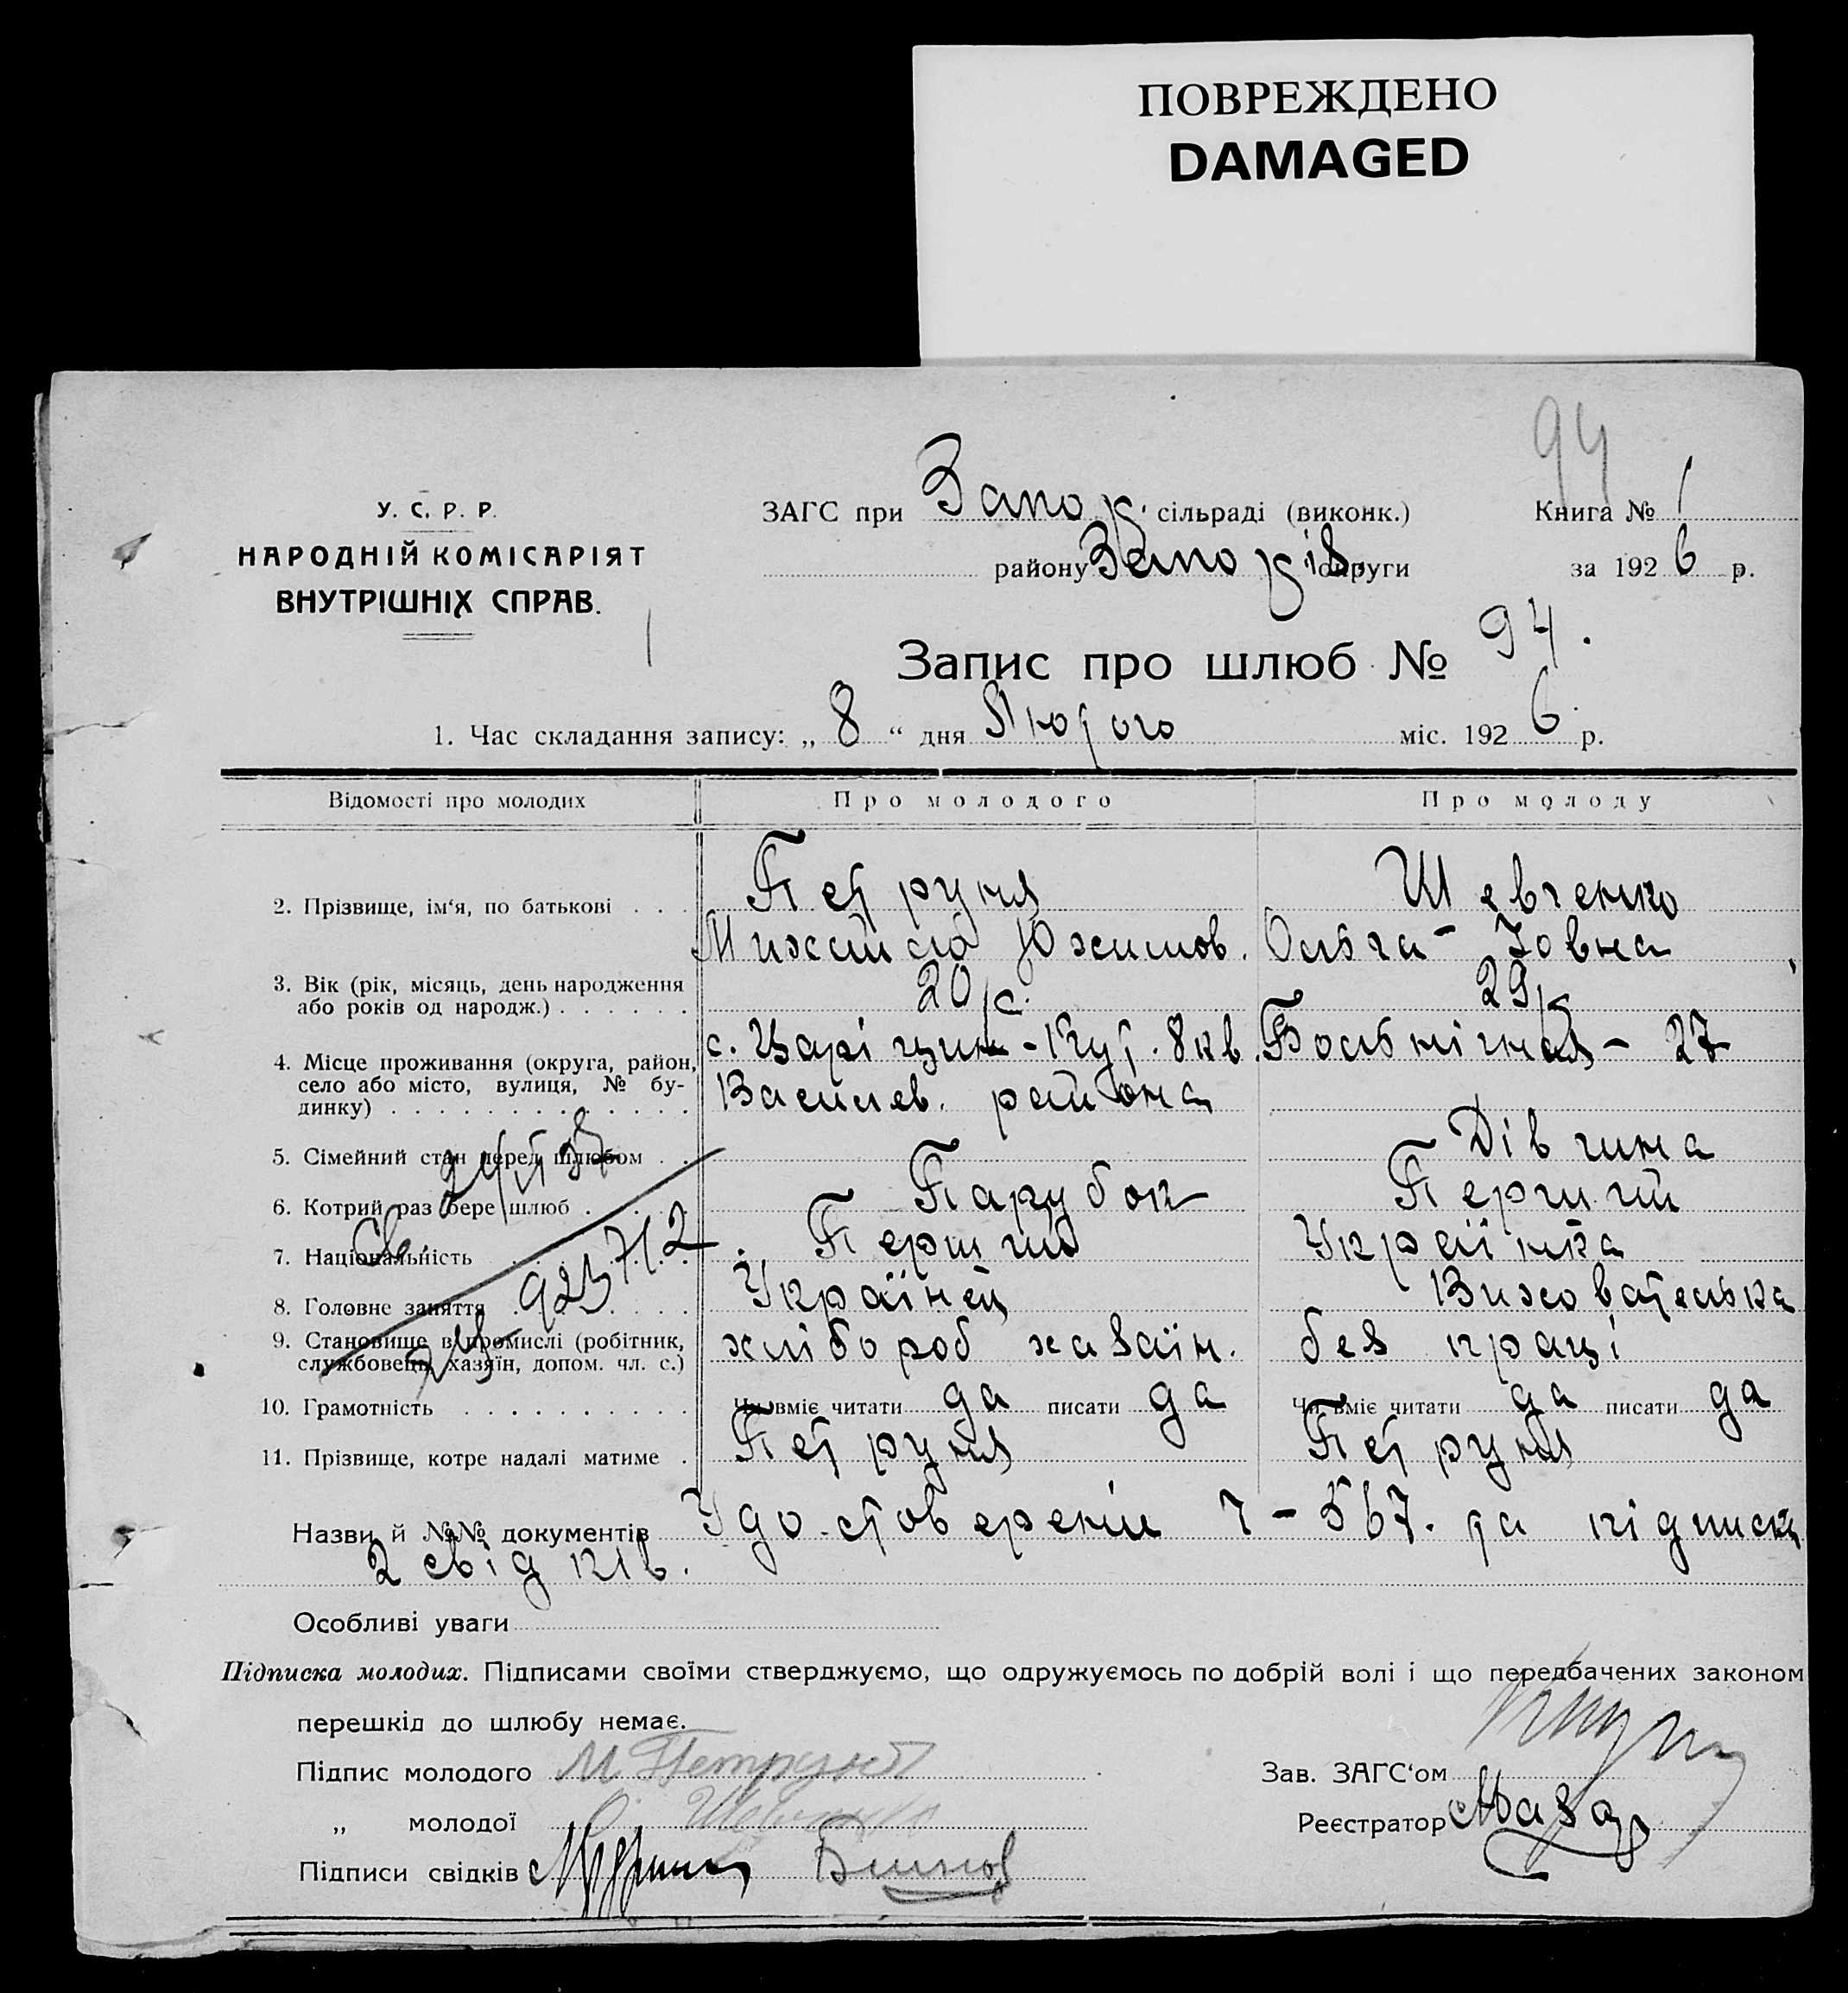 ПОВРЕЖДЕНО
DAMAGED
94
У. С. Р. Р.
НАРОДНІЙ КОМІСАРІЯТ
ВНУТРІШНІХ СПРАВ.
ЗАГС при Запор. сільраді (виконк.)
району Запоріз. округи
Книга № 1
за 1926 р.
Запис про шлюб № 94.
1. Час складання запису: „ 8 “ дня Лютого міс. 1926 р.
Відомості про молодих Про молодого Про молоду
2. Прізвище, ім‘я, по батькові . . . Петруня Шевченко
Михайло Юхимов. Ольга - Іовна
3. Вік (рік, місяць, день народження
або років од народж.) . . . . . . 20 р. 29 р.
4. Місце проживання (округа, район,
село або місто, вулиця, № бу-
динку) . . . . . . . . . . . . .
с. Царіцин-Кут. 8 кв. Больнічная - 27
Василев. района
5. Сімейний стан перед шлюбом . . Парубок Дівчина
6. Котрий раз бере шлюб . . . . Перший Перший
7. Національність . . . . . . . . Українец Украінка
8. Головне заняття . . . . . . . хлібороб Вихователька
9. Становище в промислі (робітник,
службовець, хазяїн, допом. чл. с.) хазаїн. без праці
923712
10. Грамотність . . . . . . . . . . Чи вміє читати да писати да Чи вміє читати да писати да
11. Прізвище, котре надалі матиме . Петруня Петруня
Назви й №№ документів Удостоверений 7-567. та підписка
2 свідків.
Особливі уваги
Підписка молодих. Підписами своїми стверджуємо, що одружуємось по добрій волі і що передбачених законом
перешкід до шлюбу немає.
Підпис молодого М Петруня
„ молодої О. Шевченко
Підписи свідків
Зав. ЗАГС‘ом
Реєстратор